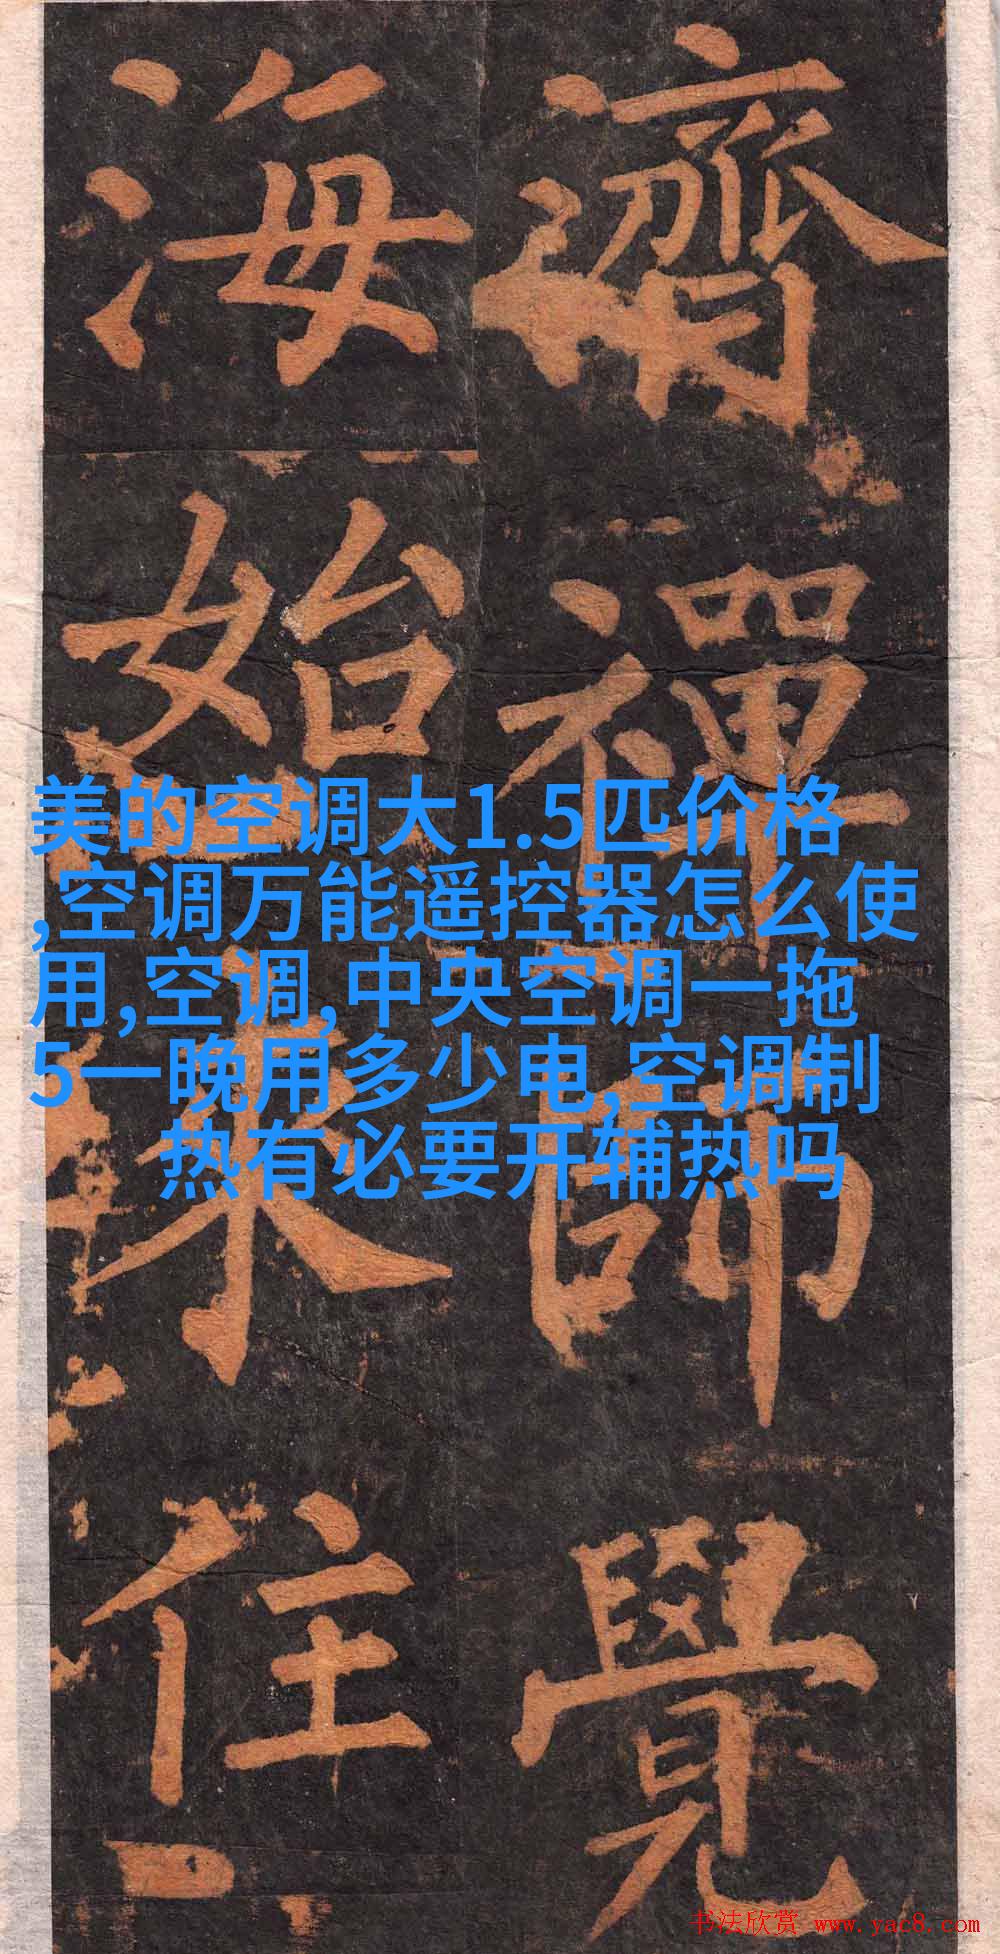 濟禪師覺
海始来住
美的空调大1.5匹价格
,空调万能遥控器怎么使
用,空调,中央空调一拖
5一晚用多少电,空调制
热有必要开辅热吗
书法欣赏 www.yac8.com